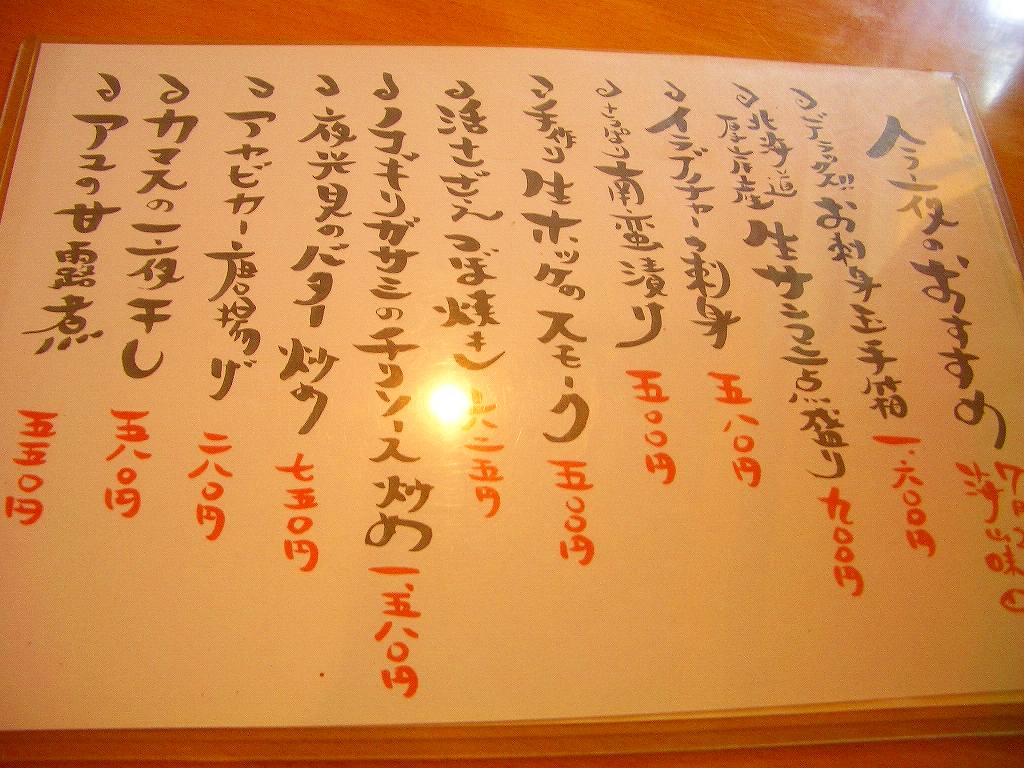 今夜のおすすめ
デラックス!!お刺身玉手箱 一、六〇〇円
北海道厚岸産生サンマ三点盛り 九〇〇円
イラブチャーの刺身 五八〇円
さっぱり南蛮漬り 五〇〇円
手作り生ホッケのスモーク 五〇〇円
活さざえつぼ焼き 六二五円
ノコギリガザミのチリソース炒め 一、五八〇円
夜光貝のバター炒め 七五〇円
アカビカー唐揚げ 二八〇円
カマスの一夜干し 五八〇円
アユの甘露煮 五五〇円